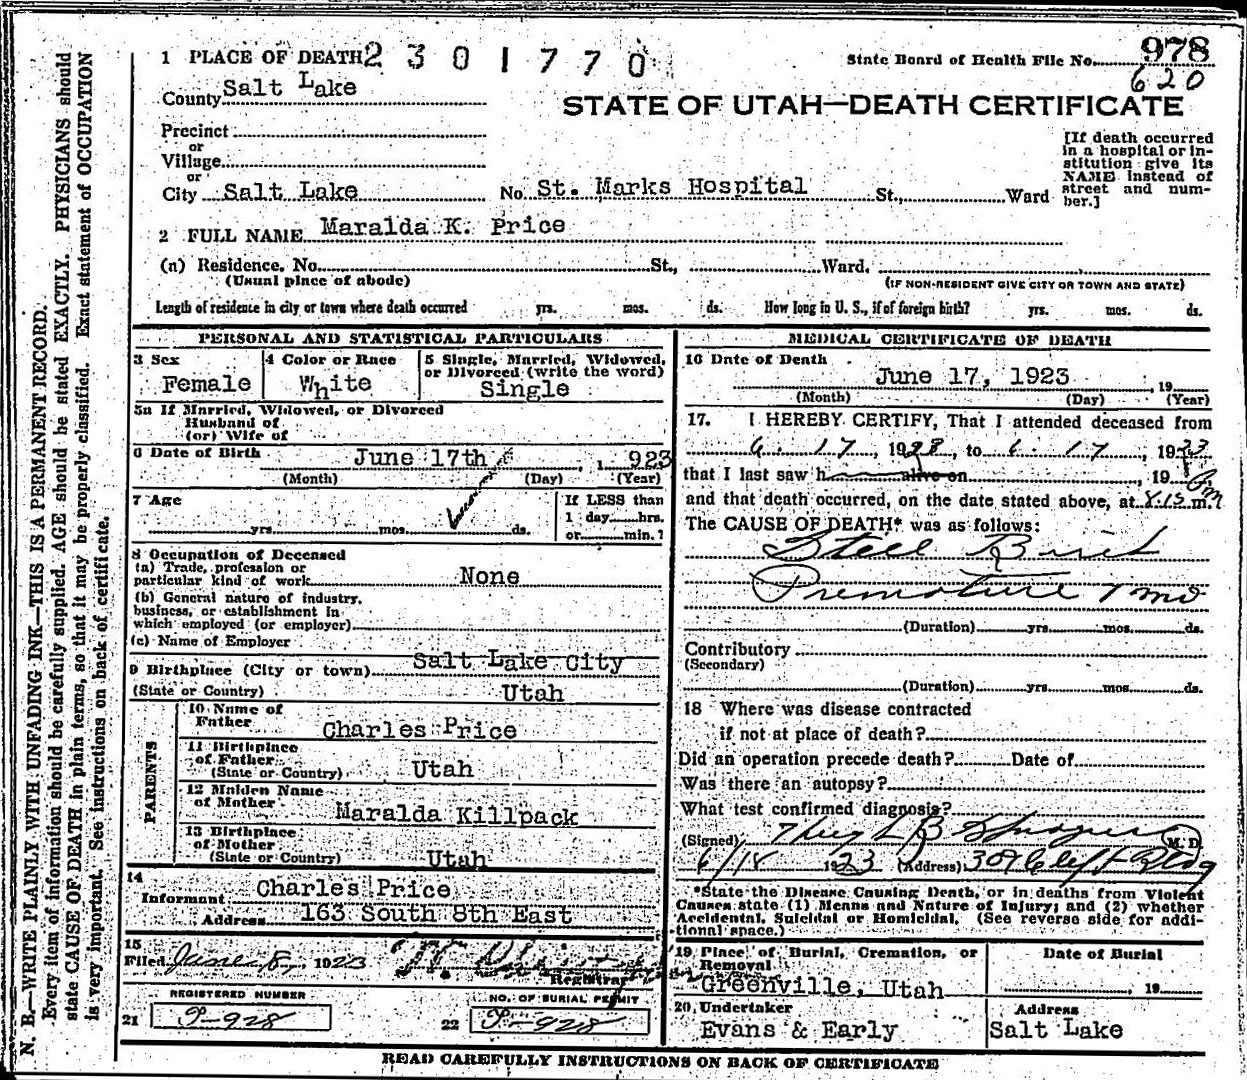 1 PLACE OF DEATH 2301770
State Board of Health File No. 978
620
County Salt Lake
STATE OF UTAH—DEATH CERTIFICATE
Precinct
or
Village
or
City Salt Lake No. St. Marks Hospital St., Ward
[If death occurred
in a hospital or in-
stitution give its
NAME instead of
street and num-
ber.]
2 FULL NAME Maralda K. Price
(a) Residence. No. St., Ward.
(Usual place of abode) (IF NON-RESIDENT GIVE CITY OR TOWN AND STATE)
Length of residence in city or town where death occurred yrs. mos. ds. How long in U. S., if of foreign birth? yrs. mos. ds.
PERSONAL AND STATISTICAL PARTICULARS
3 Sex
Female
4 Color or Race
White
5 Single, Married, Widowed,
or Divorced (write the word)
Single
5a If Married, Widowed, or Divorced
Husband of
(or) Wife of
6 Date of Birth June 17th, 1923
(Month) (Day) (Year)
7 Age
yrs. mos. ds.
If LESS than
1 day hrs.
or min.?
8 Occupation of Deceased
(a) Trade, profession or
particular kind of work None
(b) General nature of industry,
business, or establishment in
which employed (or employer)
(c) Name of Employer
9 Birthplace (City or town) Salt Lake City
(State or Country) Utah
PARENTS
10 Name of
Father Charles Price
11 Birthplace
of Father
(State or Country) Utah
12 Maiden Name
of Mother Maralda Killpack
13 Birthplace
of Mother
(State or Country) Utah
14
Informant Charles Price
Address 163 South 8th East
15
Filed June 8, 1923
Registrar
REGISTERED NUMBER
21 P-928
NO. OF BURIAL PERMIT
22 P-928
MEDICAL CERTIFICATE OF DEATH
16 Date of Death
June 17, 1923, 19
(Month) (Day) (Year)
17. I HEREBY CERTIFY, That I attended deceased from
6 - 17, 1923, to 6 - 17, 1923
that I last saw h alive on , 19
and that death occurred, on the date stated above, at 8:15 Pm m.
The CAUSE OF DEATH* was as follows:
Still Birth
Premature 7 mo
(Duration) yrs. mos. ds.
Contributory
(Secondary)
(Duration) yrs. mos. ds.
18 Where was disease contracted
if not at place of death?
Did an operation precede death? Date of
Was there an autopsy?
What test confirmed diagnosis?
(Signed) Hugh B M. D.
6/18 1923 (Address) Clift Bldg
*State the Disease Causing Death, or in deaths from Violent
Causes state (1) Means and Nature of Injury; and (2) whether
Accidental, Suicidal or Homicidal. (See reverse side for addi-
tional space.)
19 Place of Burial, Cremation, or
Removal
Greenville, Utah
Date of Burial
, 19
20 Undertaker
Evans & Early
Address
Salt Lake
READ CAREFULLY INSTRUCTIONS ON BACK OF CERTIFICATE
N. B.—WRITE PLAINLY WITH UNFADING INK—THIS IS A PERMANENT RECORD.
Every item of information should be carefully supplied. AGE should be stated EXACTLY. PHYSICIANS should
state CAUSE OF DEATH in plain terms, so that it may be properly classified. Exact statement of OCCUPATION
is very important. See instructions on back of certificate.